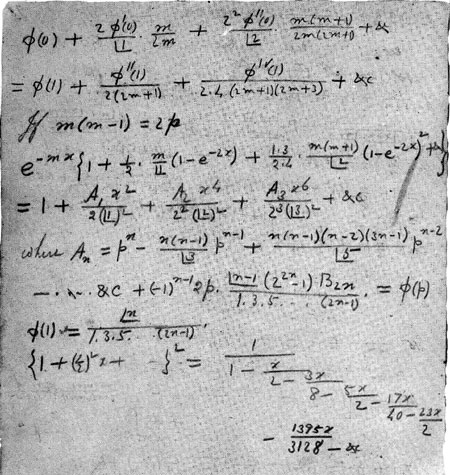 φ(0) + 2φ'(0)/⌊1 · m/2m + 2²φ''(0)/⌊2 · m(m+1)/2m(2m+1) + &c
= φ(1) + φ''(1)/2(2m+1) + φ''''(1)/2·4(2m+1)(2m+3) + &c
If m(m-1) = 2p
e^{-mx}{1 + 1/2 · m/⌊1 (1-e^{-2x}) + 1·3/2·4 · m(m+1)/⌊2 (1-e^{-2x})² + &}
= 1 + A₁x²/2(⌊1)² + A₂x⁴/2²(⌊2)² + A₃x⁶/2³(⌊3)² + &c
where Aₙ = pⁿ - n(n-1)/⌊3 p^{n-1} + n(n-1)(n-2)(3n-1)/⌊5 p^{n-2}
- ... &c + (-1)^{n-1} 2p · ⌊n-1 (2^{2n}-1) B₂ₙ/1·3·5 ... (2n-1) . = φ(p)
φ(1) = ⌊n/1·3·5 ... (2n-1) .
{1 + (1/2)²x + - }² = 1/1 - x/2 - 3x/8 - 5x/2 - 17x/40 - 23x/2
- 1395x/3128 - &